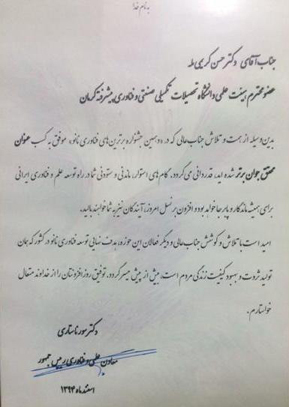 بنام خدا
جناب آقای دکتر حسن کریمی مله
عضو محترم هیئت علمی دانشگاه تحصیلات تکمیلی صنعتی و فناوری پیشرفته کرمان
بدین وسیله از همت و تلاش جناب عالی که در دومین جشنواره برترین های فناوری نانو، موفق به کسب عنوان
محقق جوان برتر شده اید، قدردانی می گردد. گام های استوار، ماندنی و ستودنی شما در راه توسعه علم و فناوری ایرانی
برای همیشه ماندگار و پابرجا خواهد بود و افزون بر نسل امروز، آیندگان نیز به شما خواهند بالید.
امید است با تلاش و کوشش جناب عالی و دیگر فعالان این حوزه، هدف نهایی توسعه فناوری نانو در کشور که همان
تولید ثروت و بهبود کیفیت زندگی مردم است، بیش از پیش میسر گردد. توفیق روزافزونتان را از خداوند متعال
خواستارم.
دکتر سورنا ستاری
معاون علمی و فناوری رئیس جمهور
اسفند ماه ۱۳۹۴